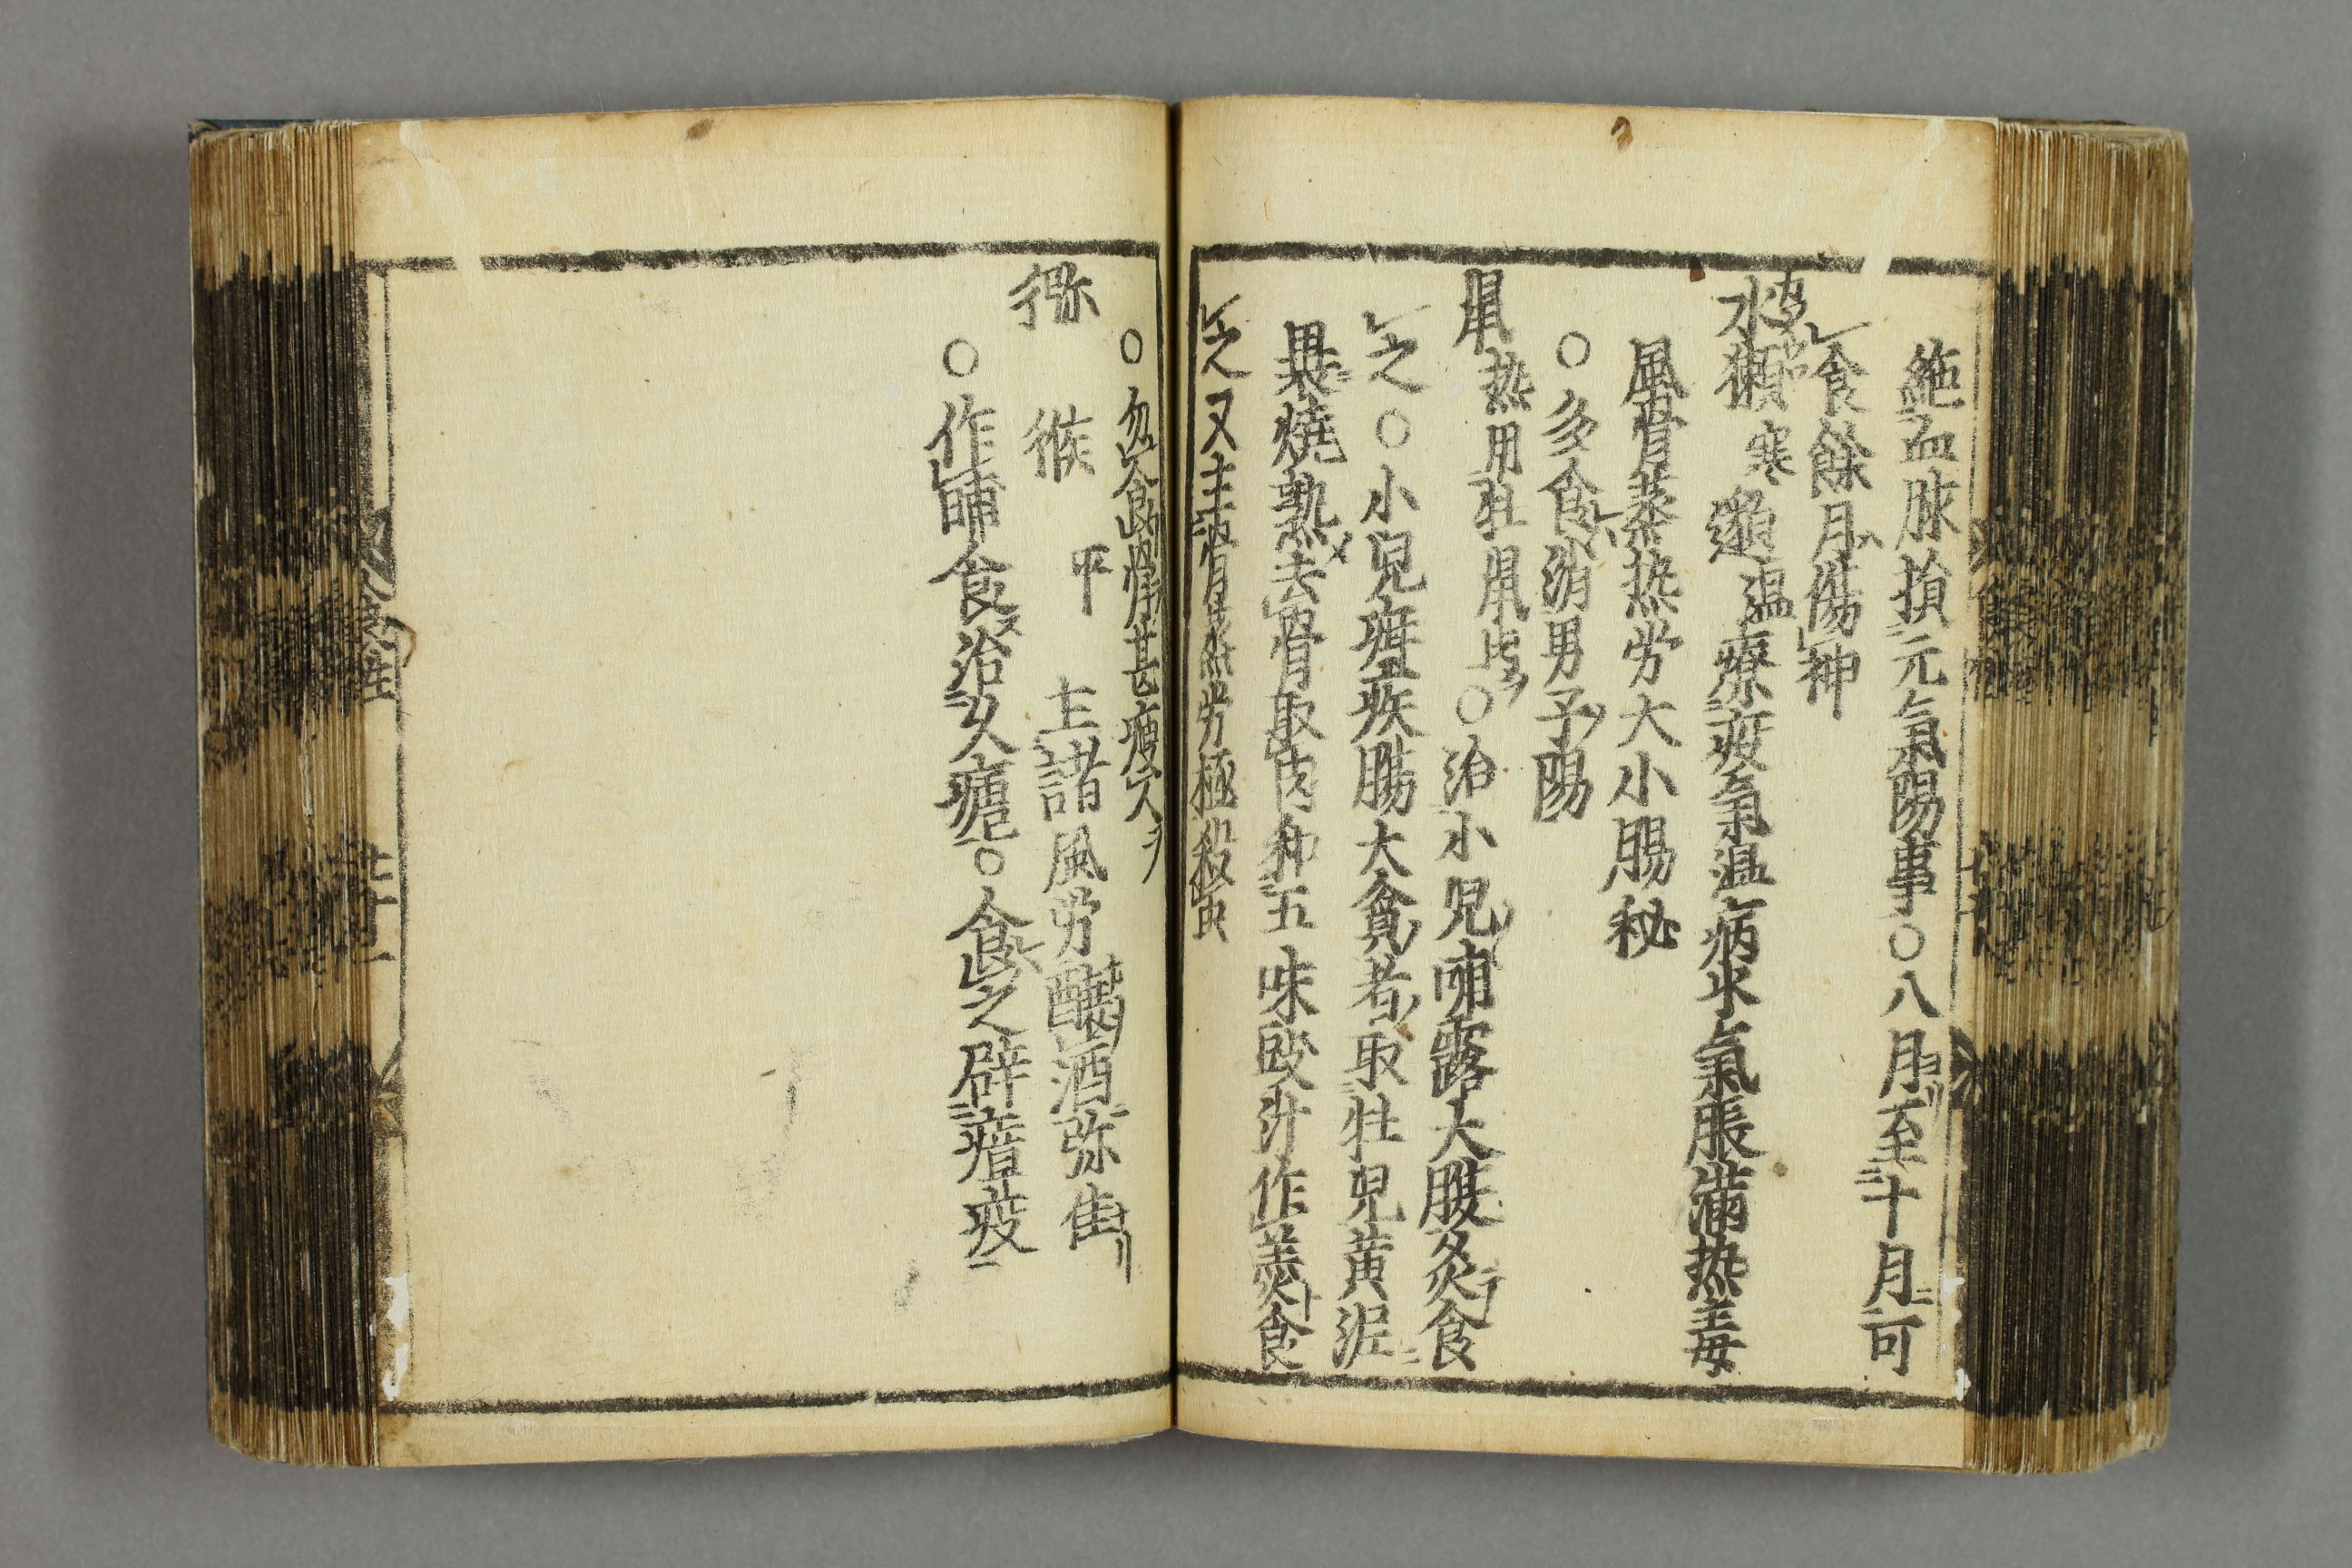 絶血脉損元氣陽事○八月至十月可
食餘月傷神
水獺寒獺温療疫氣温病水氣脹滿热毒
風骨蒸热労大小腸秘
○多食消男子陽
鼠热用牡鼠皆○治小児哺露大腹炙食
之○小児疳疾腸大貪者取牡鼠黄泥
裹燒熟去骨取肉和五味豉汁作羹食
之又主骨蒸労極殺虫
○勿食骨甚瘦人
猕猴平主諸風労醸酒弥佳
○作脯食治久瘧○食之辟瘴疫